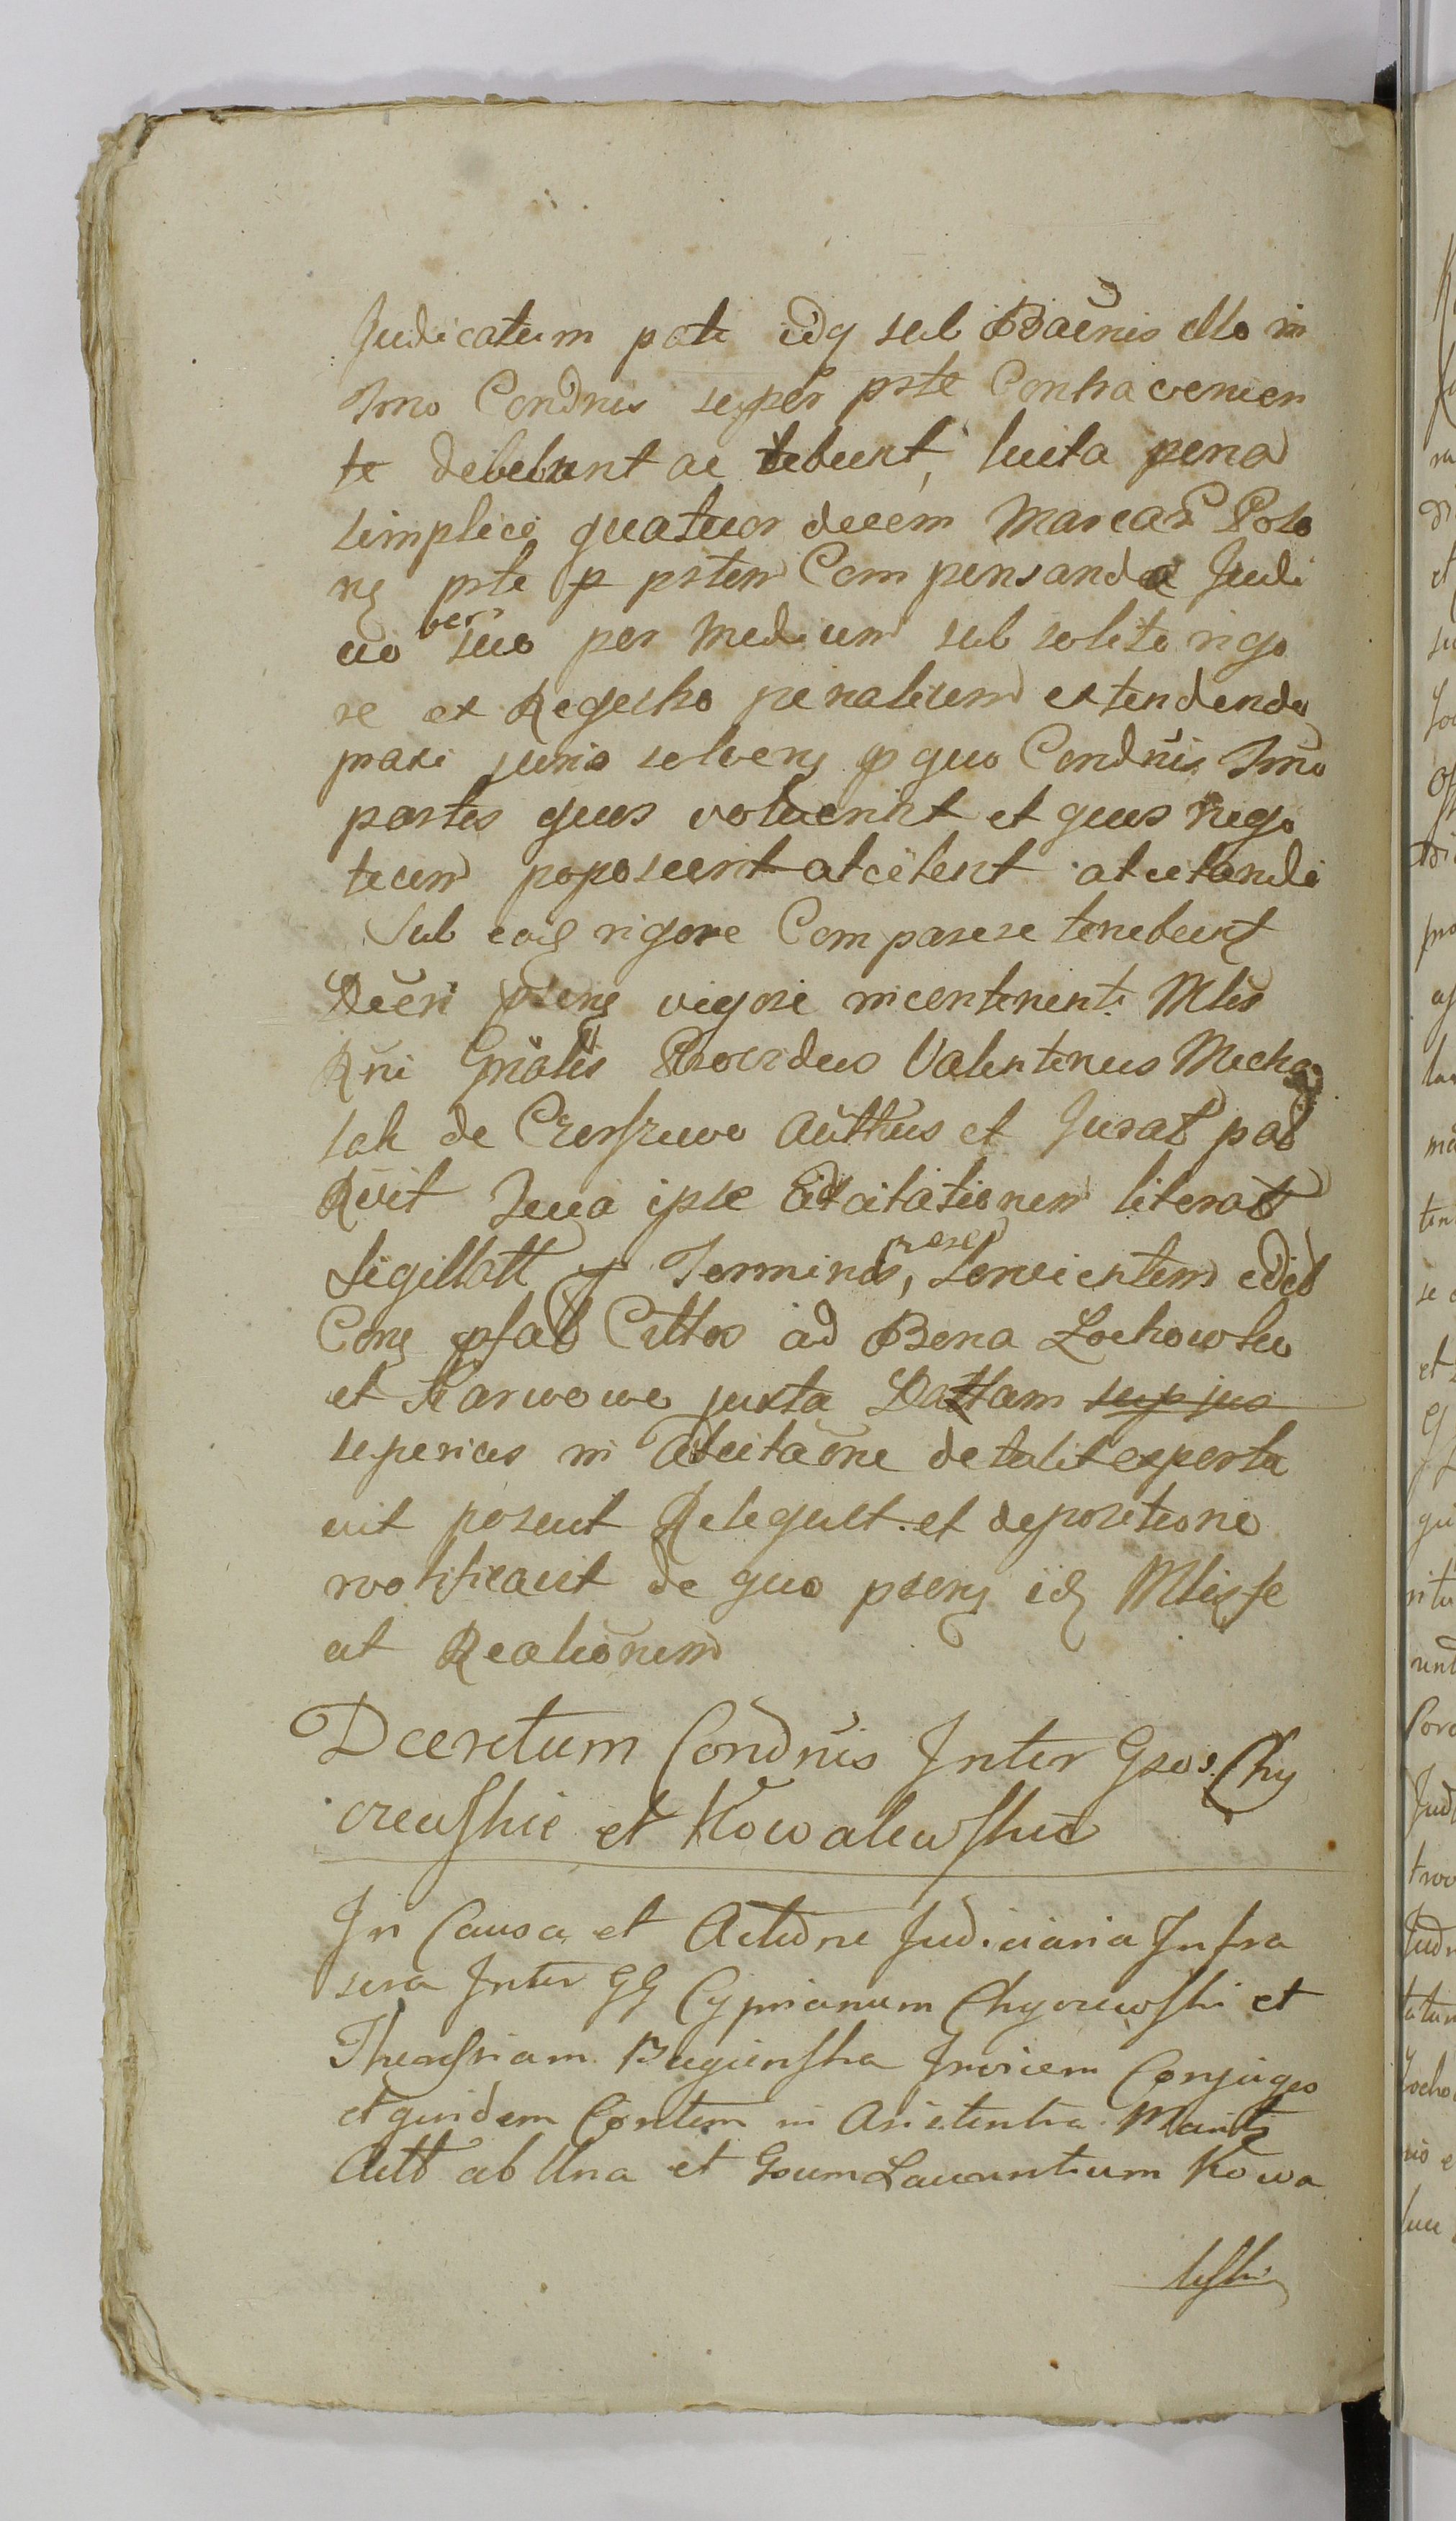 Judicatum pati idq sub Baenis illo in
Tmo Condnis super prte Contravenien
te debebunt ac debebunt, luita pena
simplici quatuor decem Marcar Polo
nq prte p prtem Compensanda Judi
cio vero suo per medium sub solito rigo
re ex Regestro penalium extendendo
praxi juris solveng p quo Condnis Tmo
partes quos voluerint et quos nego
tium poposcerit atcitent atcitandi
Sub eodq rigore Comparere tenebunt
Decri preng vigore incontinenti Mtis
Rni Gnalis Provridus Valentinus Micha
lak de Czerszewo Autthus et Jurat pal
Rvit Quia ipse Adcitationem literat
Sigillatt p Terminos, Servientem edict
Conq pfat Citttos ad Bona Lochowko
et Karwowo juxta Dattam sup jus
superius in Adcitaone detalit exporta
vit posuit Reliquit et depositione
notificavit de quo preng idq Mtis fe
cit Realionem
Decretum Condnis Inter Gsos Chy
czewskie et Kowalewskie
In Causa et Actione Judiciaria Infra
scra Inter GG Cyprianum Chyczewski et
Theressiam Bagienska Invicem Conjuges
et quidem Contem in Asistentia Mariti
Actt ab Una et Gsum Laurentium Kowa
leski